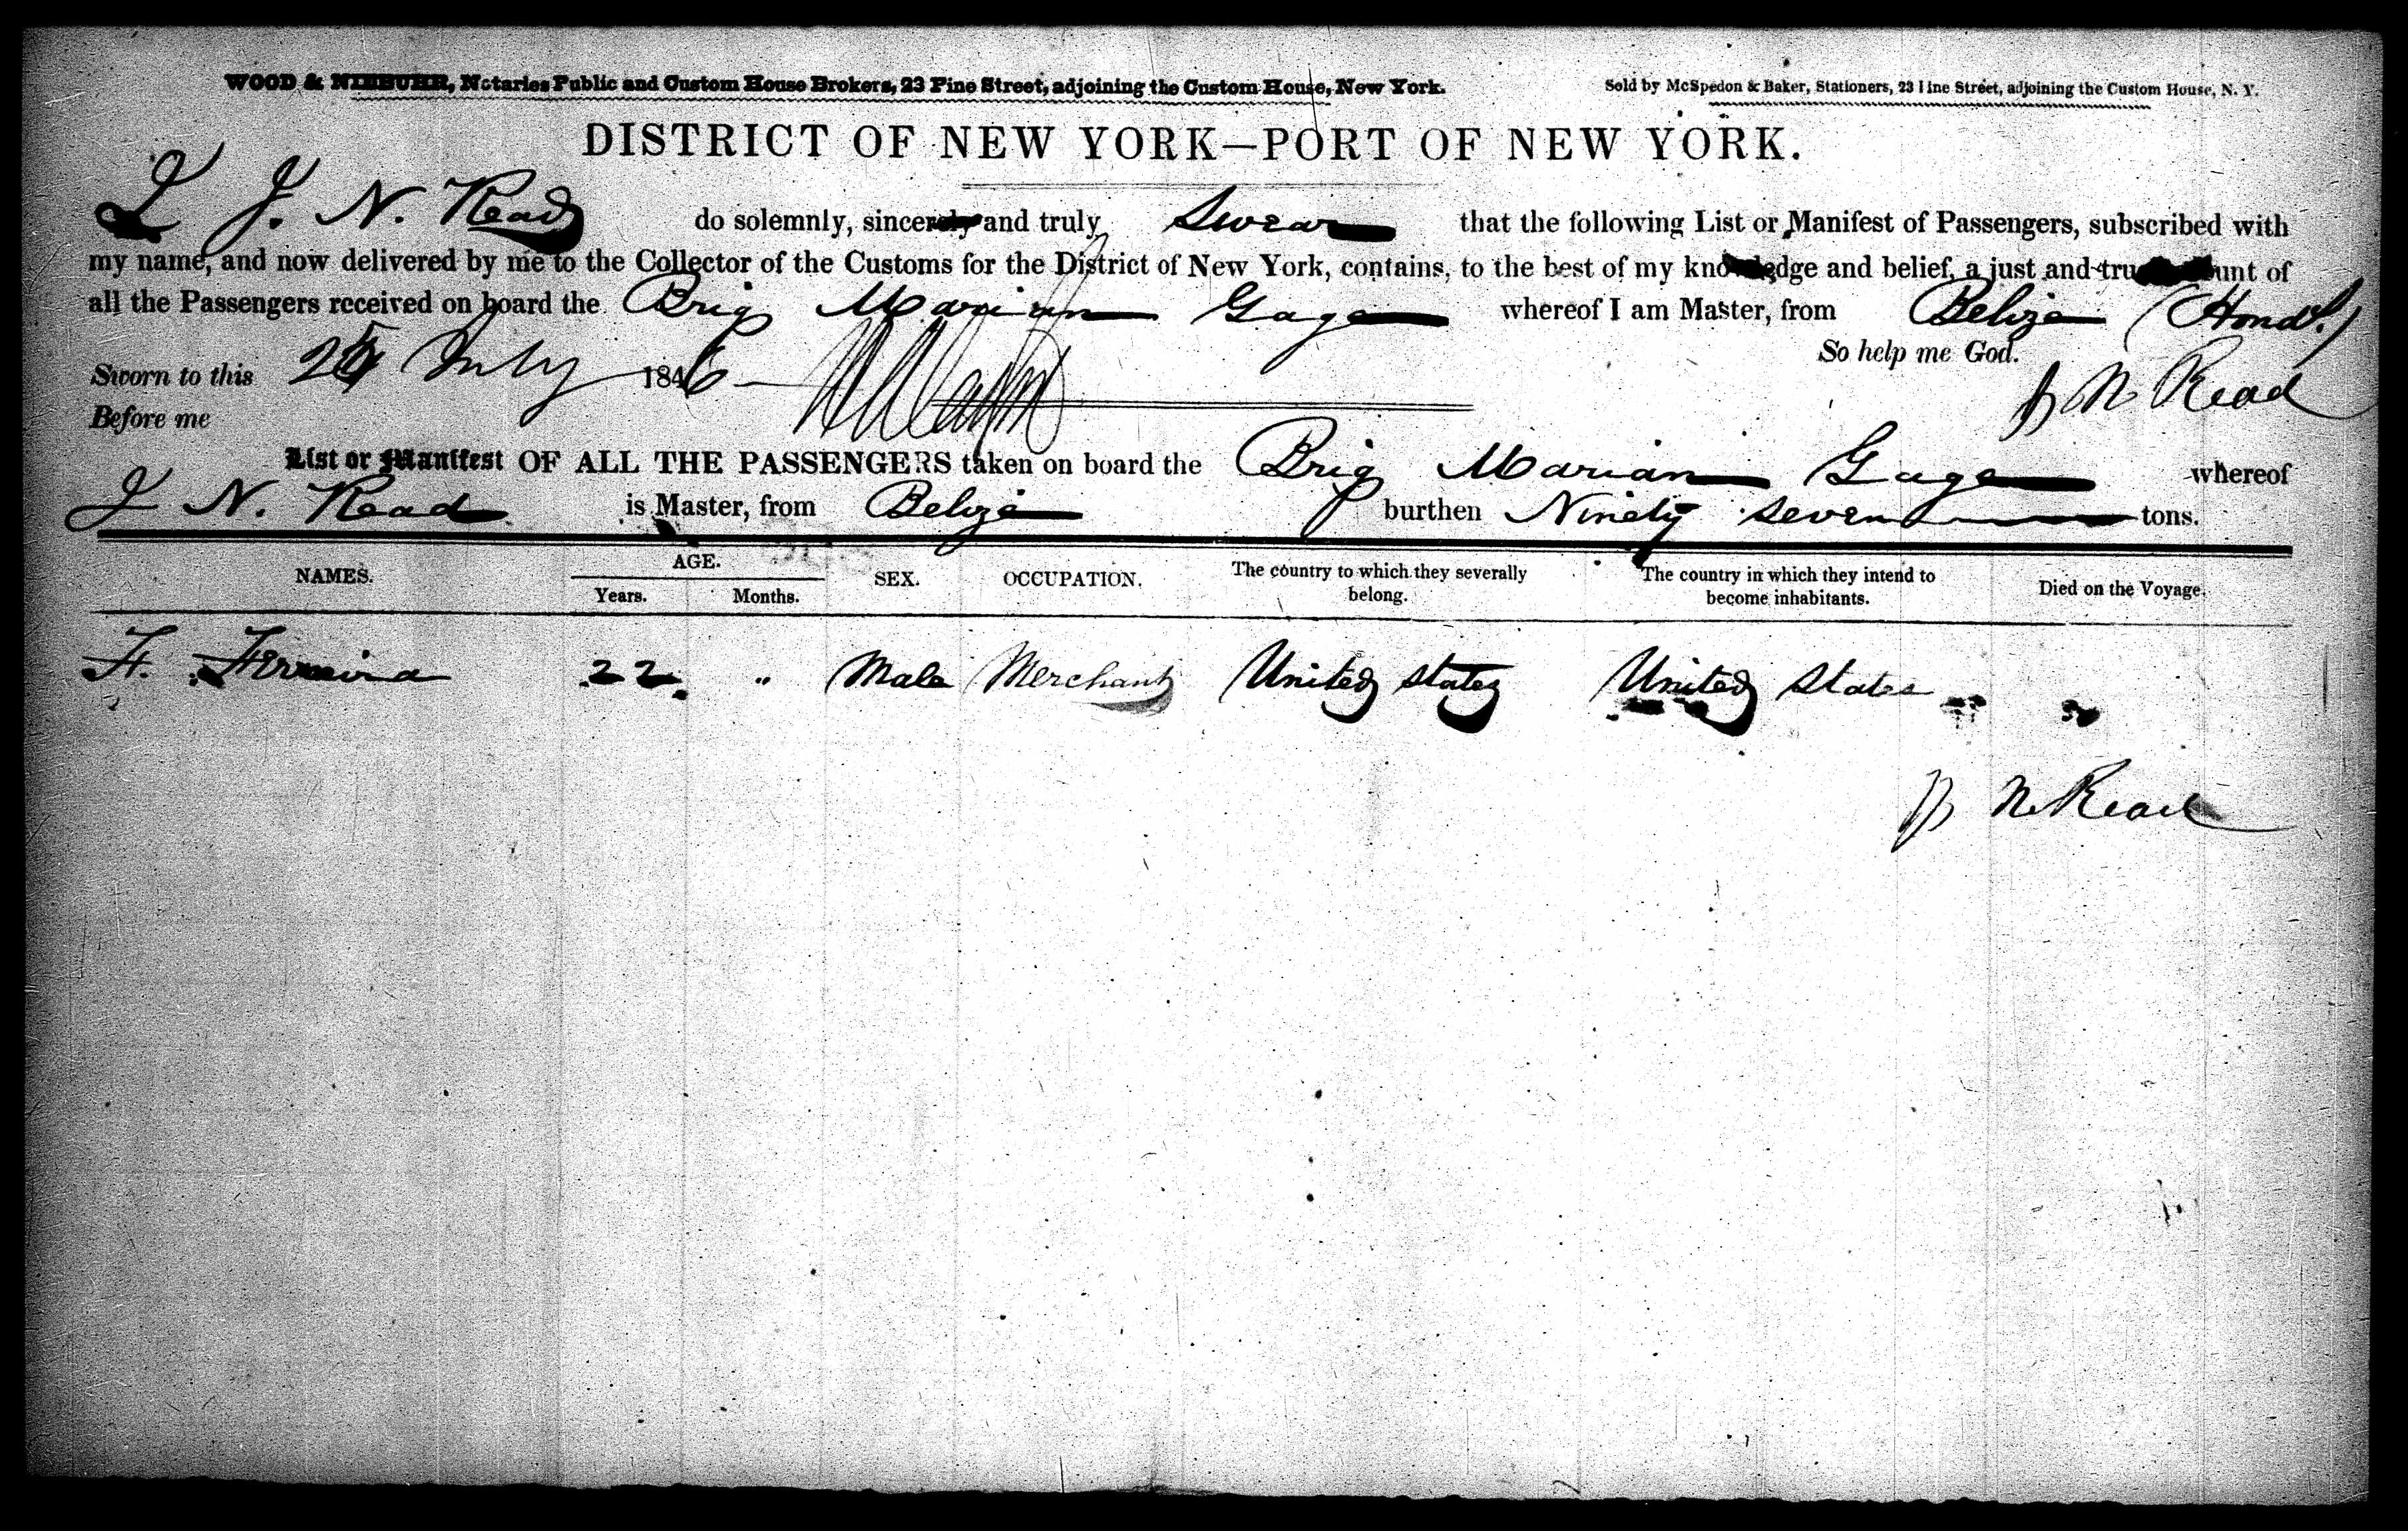 WOOD & NIEBUHR, Notaries Public and Custom House Brokers, 23 Pine Street, adjoining the Custom House, New York.
Sold by McSpedon & Baker, Stationers, 23 Pine Street, adjoining the Custom House, N. Y.
DISTRICT OF NEW YORK—PORT OF NEW YORK.
I J. N. Read do solemnly, sincerely and truly Swear that the following List or Manifest of Passengers, subscribed with
my name, and now delivered by me to the Collector of the Customs for the District of New York, contains, to the best of my knowledge and belief, a just and true account of
all the Passengers received on board the Brig Marian Gage whereof I am Master, from Belize (Hond.)
So help me God.
Sworn to this July 1846
J N Read
Before me
List or Manifest OF ALL THE PASSENGERS taken on board the Brig Marian Gage whereof
J N. Read is Master, from Belize burthen Ninety seven tons.
NAMES. AGE. Years. Months. SEX. OCCUPATION. The country to which they severally belong. The country in which they intend to become inhabitants. Died on the Voyage.
F. Ferreira 22 " Male Merchant United States United States
J N Read